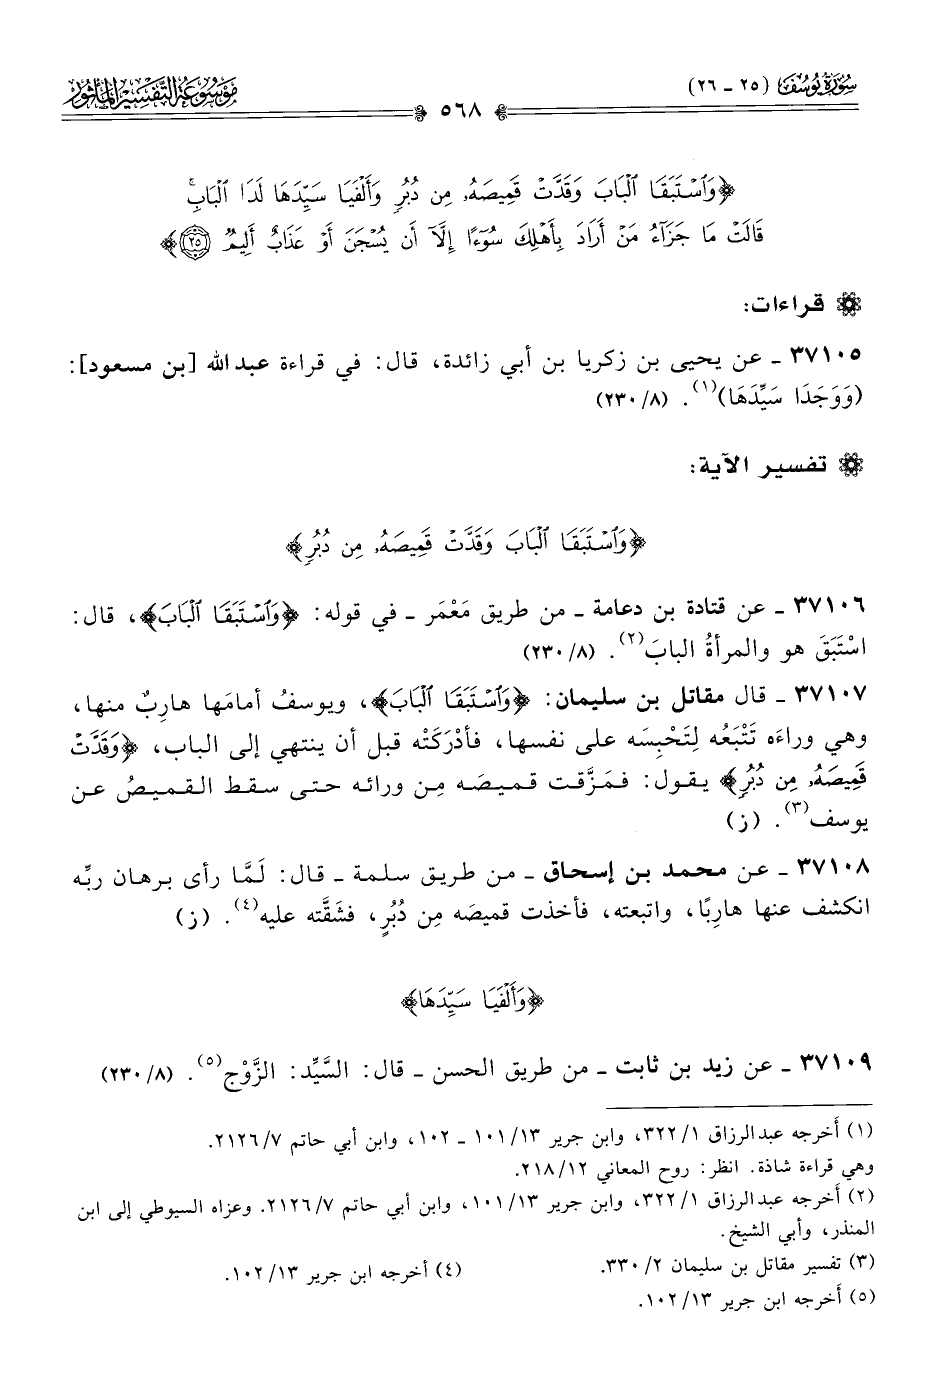 سُورَةُ يُوسُفَ (٢٥ - ٢٦)
٥٦٨
مَوْسُوعَةُ التَّفْسِيرِ المَأْثُورِ
﴿وَٱسۡتَبَقَا ٱلۡبَابَ وَقَدَّتۡ قَمِيصَهُۥ مِن دُبُرٖ وَأَلۡفَيَا سَيِّدَهَا لَدَا ٱلۡبَابِۚ
قَالَتۡ مَا جَزَآءُ مَنۡ أَرَادَ بِأَهۡلِكَ سُوٓءًا إِلَّآ أَن يُسۡجَنَ أَوۡ عَذَابٌ أَلِيمٞ ٢٥﴾
قراءات:
٣٧١٠٥ ـ عن يحيى بن زكريا بن أبي زائدة، قال: في قراءة عبد الله [بن مسعود]:
(وَوَجَدَا سَيِّدَهَا)(١). (٢٣٠/٨)
تفسير الآية:
﴿وَٱسۡتَبَقَا ٱلۡبَابَ وَقَدَّتۡ قَمِيصَهُۥ مِن دُبُرٖ﴾
٣٧١٠٦ ـ عن قتادة بن دعامة ـ من طريق مَعْمَر ـ في قوله: ﴿وَٱسۡتَبَقَا ٱلۡبَابَ﴾، قال:
اسْتَبَقَ هو والمرأةُ البابَ(٢). (٢٣٠/٨)
٣٧١٠٧ ـ قال مقاتل بن سليمان: ﴿وَٱسۡتَبَقَا ٱلۡبَابَ﴾، ويوسفُ أمامَها هاربٌ منها،
وهي وراءَه تَتْبَعُه لِتَحْبِسَه على نفسها، فأدْرَكَتْه قبل أن ينتهي إلى الباب، ﴿وَقَدَّتۡ
قَمِيصَهُۥ مِن دُبُرٖ﴾ يقول: فمَزَّقت قميصَه مِن ورائه حتى سقط القميصُ عن
يوسف(٣). (ز)
٣٧١٠٨ ـ عن محمد بن إسحاق ـ من طريق سلمة ـ قال: لَمَّا رأى برهان ربِّه
انكشف عنها هارِبًا، واتبعته، فأخذت قميصَه مِن دُبُرٍ، فشَقَّته عليه(٤). (ز)
﴿وَأَلۡفَيَا سَيِّدَهَا﴾
٣٧١٠٩ ـ عن زيد بن ثابت ـ من طريق الحسن ـ قال: السَّيِّد: الزَّوْج(٥). (٢٣٠/٨)
(١) أخرجه عبد الرزاق ٣٢٢/١، وابن جرير ١٠١/١٣ ـ ١٠٢، وابن أبي حاتم ٢١٢٦/٧.
وهي قراءة شاذة. انظر: روح المعاني ٢١٨/١٢.
(٢) أخرجه عبد الرزاق ٣٢٢/١، وابن جرير ١٠١/١٣، وابن أبي حاتم ٢١٢٦/٧. وعزاه السيوطي إلى ابن
المنذر، وأبي الشيخ.
(٣) تفسير مقاتل بن سليمان ٣٣٠/٢.
(٤) أخرجه ابن جرير ١٠٢/١٣.
(٥) أخرجه ابن جرير ١٠٢/١٣.